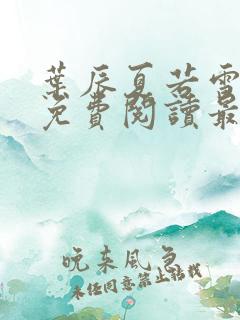 葉辰夏若雪
免費閱讀最
晚来風急
未经同意禁止转载